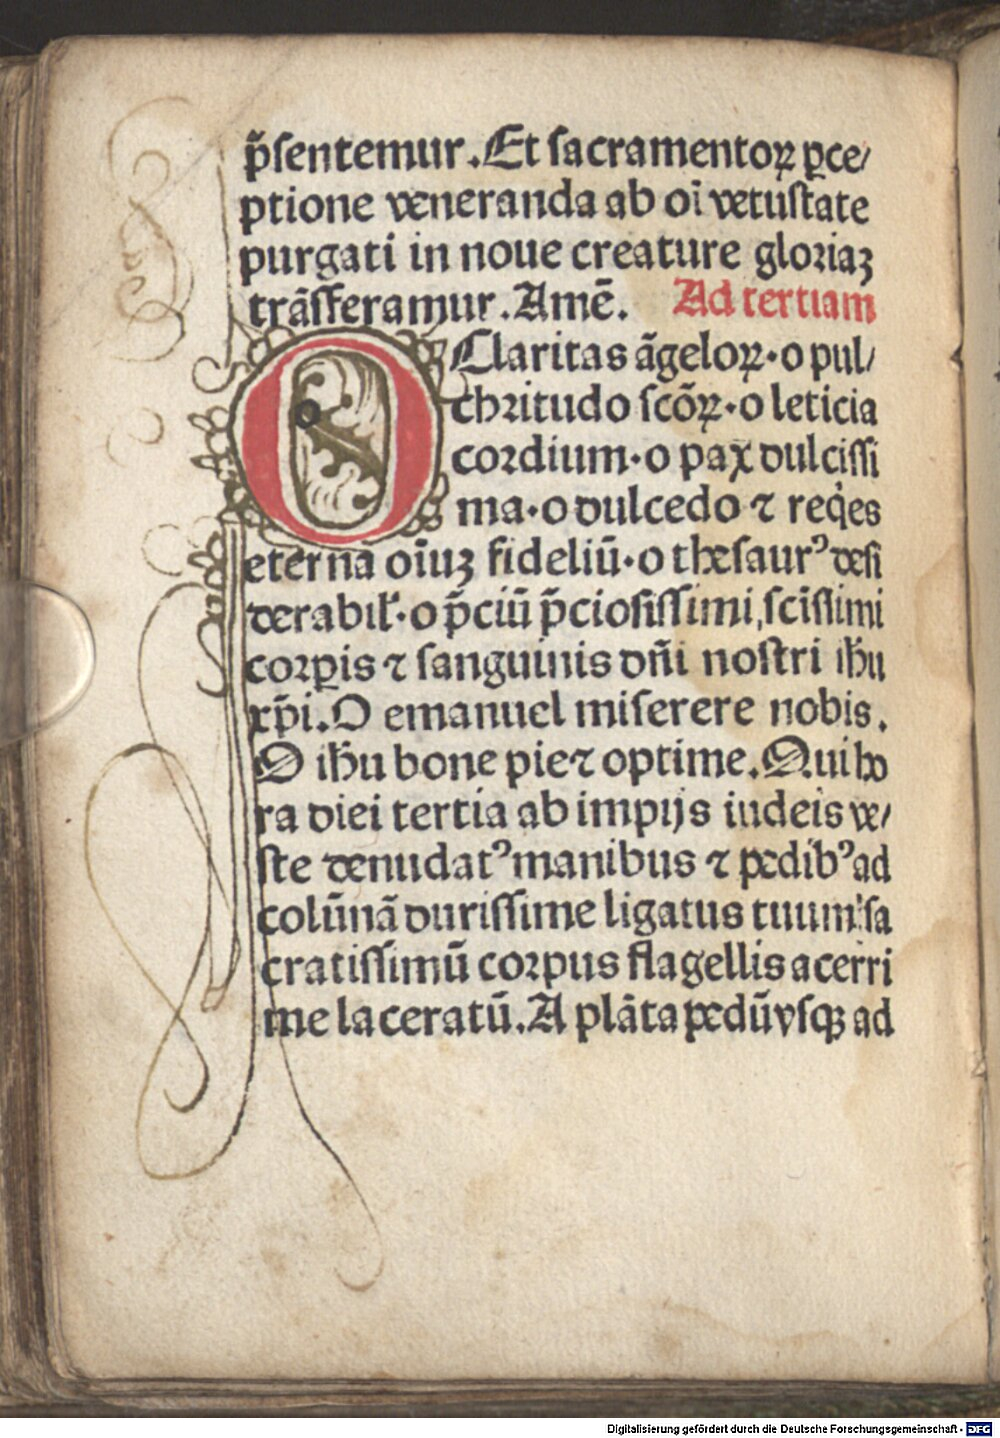 p̃sentemur. Et sacramentoꝝ ꝑce/
ptione veneranda ab oı̄ vetustate
purgati in noue creature gloriaꝫ
trāsferamur. Amē. Ad tertiam
O Claritas āgeloꝝ· o pul/
chritudo scōꝝ· o leticia
cordium· o pax dulcissi
ma· o dulcedo ⁊ reqͥes
eterna oı̄uꝫ fideliū· o thesaurꝰ desi
derabil̕· o p̄ciū p̄ciosissimi, scissimi
corꝑis ⁊ sanguinis dn̄i nostri ihu
xp̄i. O emanuel miserere nobis.
O ihu bone pie ⁊ optime. Qui ho
ra diei tertia ab impijs iudeis ve/
ste denudatꝰ manibus ⁊ pedibꝰ ad
colūnā durissime ligatus tuum sa
cratissimū corpus flagellis acerri
me laceratū. A plāta pedū vsqꝫ ad
Digitalisierung gefördert durch die Deutsche Forschungsgemeinschaft - DFG